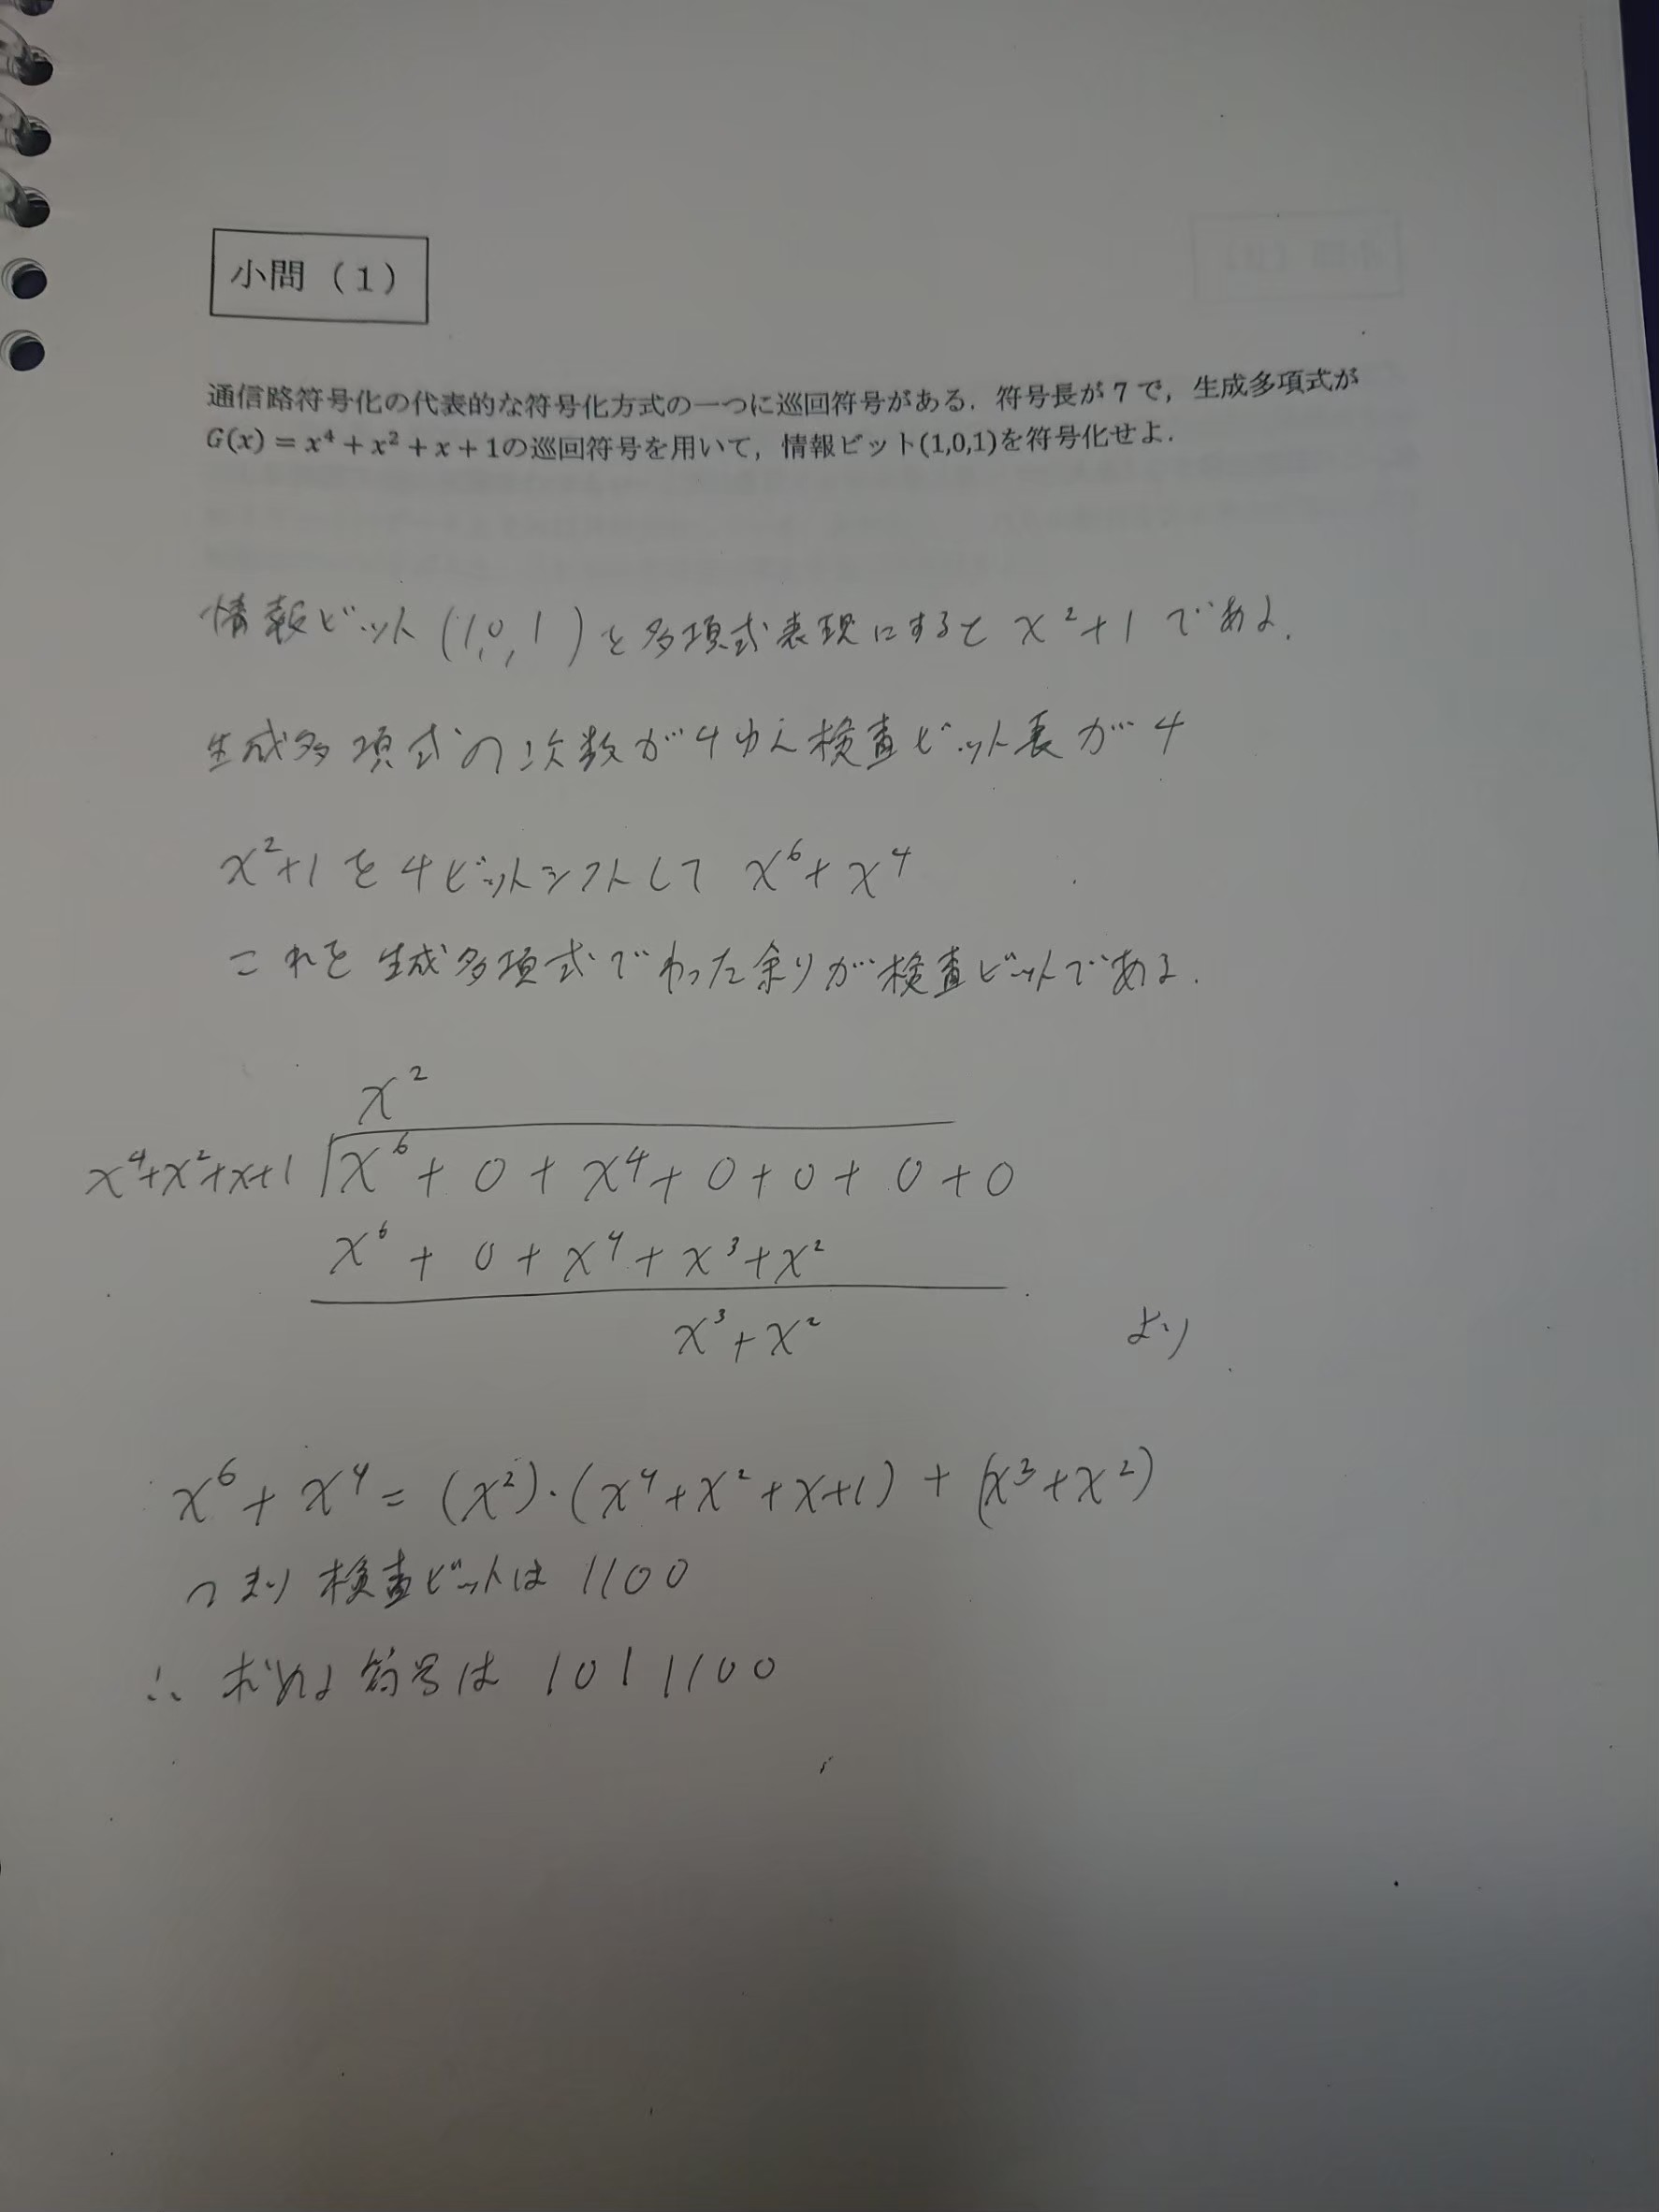 小問（1）
通信路符号化の代表的な符号化方式の一つに巡回符号がある．符号長が7で，生成多項式が
G(x) = x⁴ + x² + x + 1の巡回符号を用いて，情報ビット(1,0,1)を符号化せよ．
情報ビット(1,0,1)を多項式表現にするとx²+1である.
生成多項式の次数が4ゆえ検査ビット長が4
x²+1を4ビットシフトしてx⁶+x⁴
これを生成多項式でわった余りが検査ビットである.
x²
x⁴+x²+x+1 x⁶+0+x⁴+0+0+0+0
x⁶+0+x⁴+x³+x²
x³+x² より
x⁶+x⁴=(x²)·(x⁴+x²+x+1)+(x³+x²)
つまり検査ビットは1100
∴求める符号は1011100